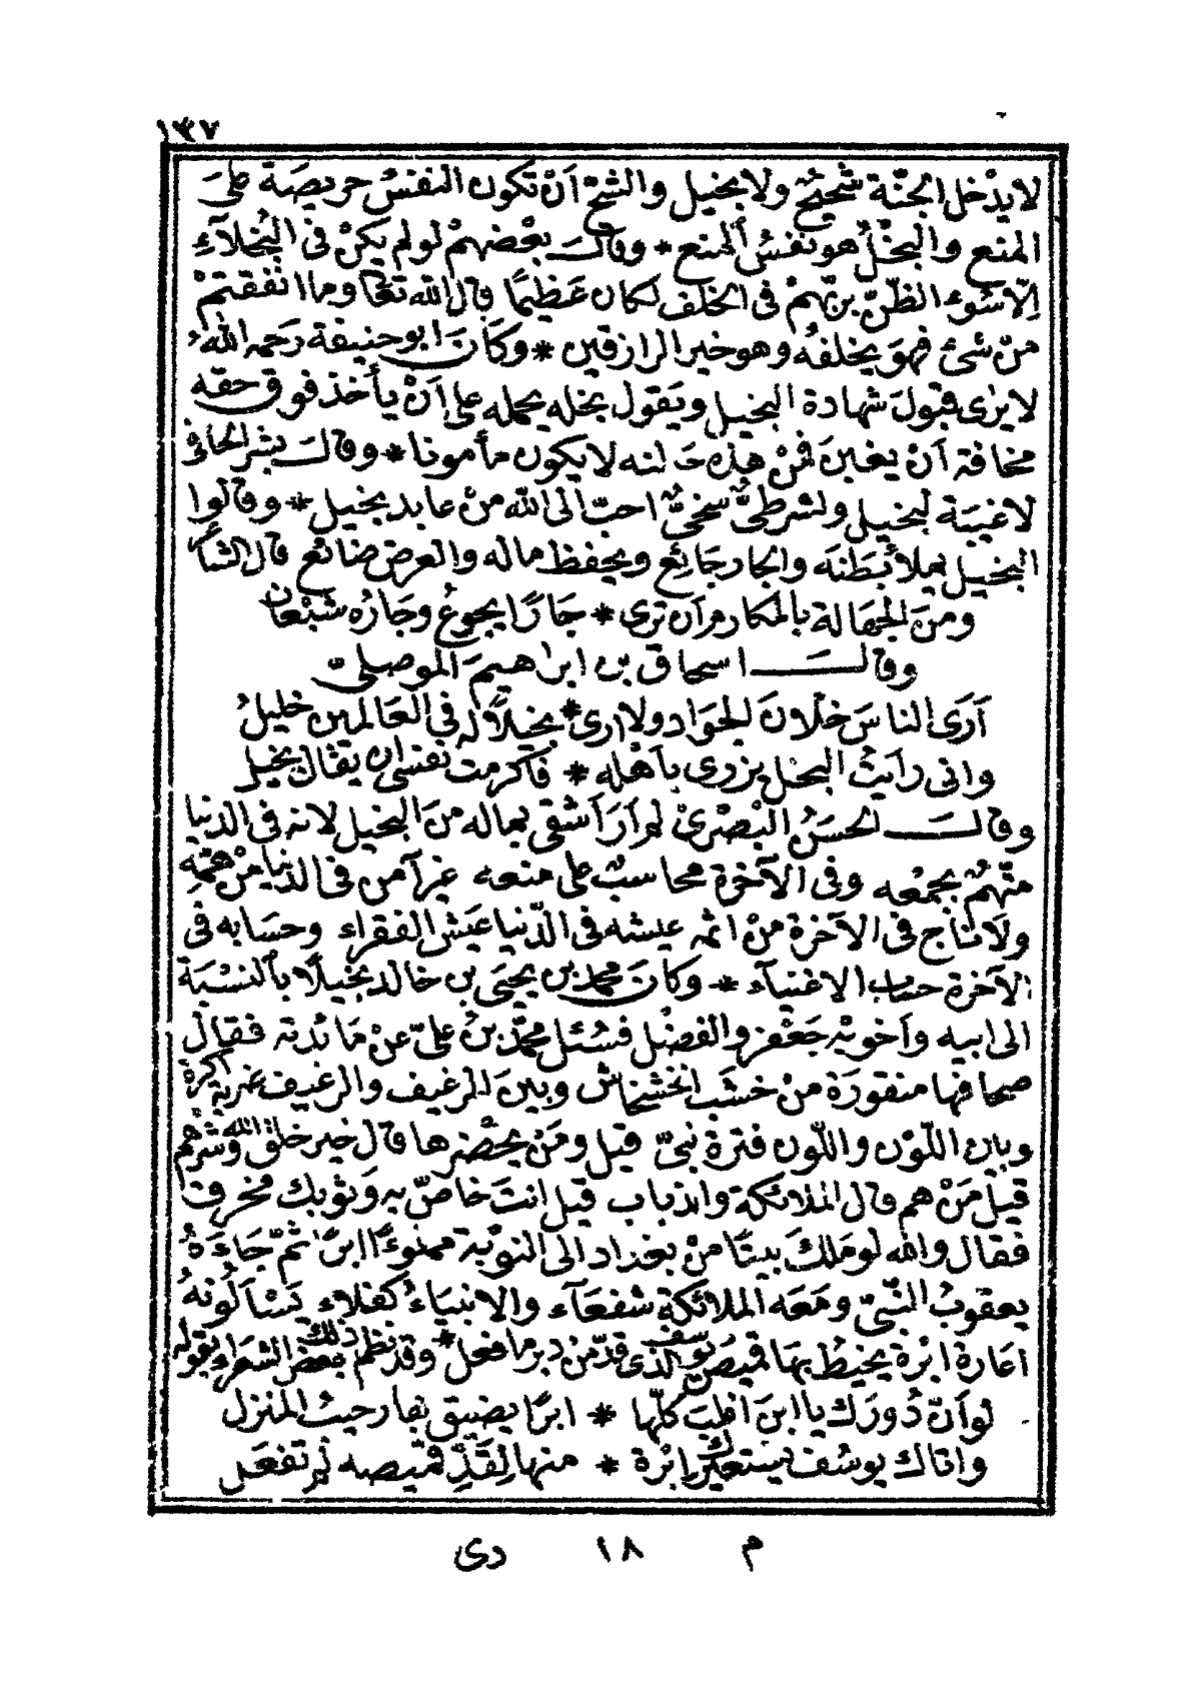 ١٣٧
لا يدْخل الجنّة شحيحٌ ولا بخيل والشحّ اَنْ تكون النفسُ حريصَة علىَ
المنع والبخْلُ هو نفسُ المنع * وقالَ بعْضهمْ لو لم يكنْ فى البُخلآءِ
اِلّا سُوءُ الظنّ بربّهمْ فى الخلف لكان عَظيمًا قال الله تعَالى وما انفقتمْ
منْ شئ فهوَ يخلفُه وهو خير الرازقين * وكاَنَ ابو حنيفة رَحمه اللهُ
لا يرٰى قبولَ شهادة البخيل ويَقول بخله يحمله على اَنْ يأخذ فوق حقه
مخافة اَنْ يغبنَ فمنْ هذه حَالته لا يكون مأمونا * وقالَ بشر الحافى
لا غيبَة لبخيل ولشرطىٌّ سخىٌّ احبّ الى الله منْ عابد بخيل * وقالوا
البخيل يملأ بَطنَه والجار جَائع ويحفظ ماله والعرض ضائع قال الشاعر
ومنَ الجَهَالة بالمكارم اَن ترى * جَارًا يجوعُ وجَارُه شبْعان
وقالَ اسحاق بن ابرٰاهيمَ الموصلى
اَرَى الناسَ خلّانَ الجوَاد ولا ارى * بخيلًا له فى العَالمين خليلُ
وانى رأيتُ البخل يزرى بأهْله * فأكرمت نفسى ان يقال بخيل
وقالَ الحسَنُ البْصْرىّ لم اَرَ اَشقى بماله منَ البخيل لانه فى الدنيا
متّهمٌ بجمْعه وفى الآخرة محاسبٌ على منعه غير آمن فى الدنيا منْ همّه
ولا ناج فى الآخرة منْ اثمه عيشه فى الدّنيا عَيش الفقراء وحسَابه فى
الآخرة حساب الاغنيآء * وكانَ محمد بن يحيَى بن خالد بخيلًا بالنسْبَة
الى ابيه وأخويْه جَعْفر والفضْل فسُئل محمّد بنُ علىّ عنْ مَائدته فقالَ
صحافها منقورَة منْ خشب الخشخاش وبينَ الرغيف والرغيف ضربة اكرة
وبين اللّوْن واللّون فترة نبىّ قيل ومَنْ يحْضرها قال خير خلق الله وشرهم
قيلَ مَنْ هم قال الملائكة والذباب قيل انتَ خاصّ به وَثوبك مخرق
فقال والله لو مَلكَ بيتًا منْ بغداد الى النوْبة مملوءًا ابرًا ثمّ جَاءَهُ
يعقوبُ النّبىّ ومَعَه الملائكة شفعَآء والانبيَاءُ كفلاء يَسْألونهُ
اعَارة ابْرة يخيط بها قميصَ يوسف الذى قدّ منُ دبر ما فعل * وقد نظم ذلك بعض الشعراء بقوله
لو اَنّ دُورَك يا ابنَ اغلب كلّها * ابرًا يضيق بها رحيبُ المنزل
واتاك يوسُف يستعيرك ابْرة * منها لِقَدِّ قميصه لم تفعَل
م ١٨ دى